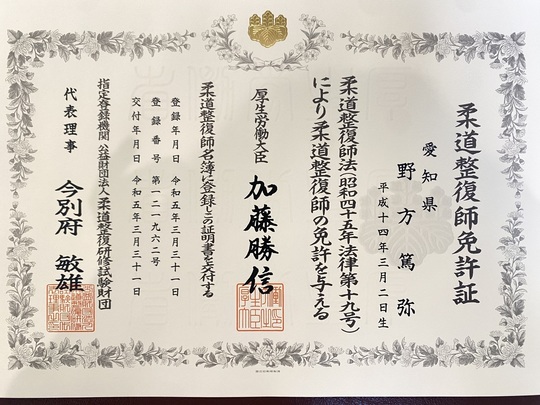 柔道整復師免許証
愛知県
野方篤弥
平成十四年三月二日生
柔道整復師法(昭和四十五年法律第十九号)
により柔道整復師の免許を与える
厚生労働大臣
加藤勝信
柔道整復師名簿に登録しこの証明書を交付する
登録年月日 令和五年三月三十一日
登録番号 第一二一九六二号
交付年月日 令和五年三月三十一日
指定登録機関 公益財団法人 柔道整復研修試験財団
代表理事 今別府敏雄